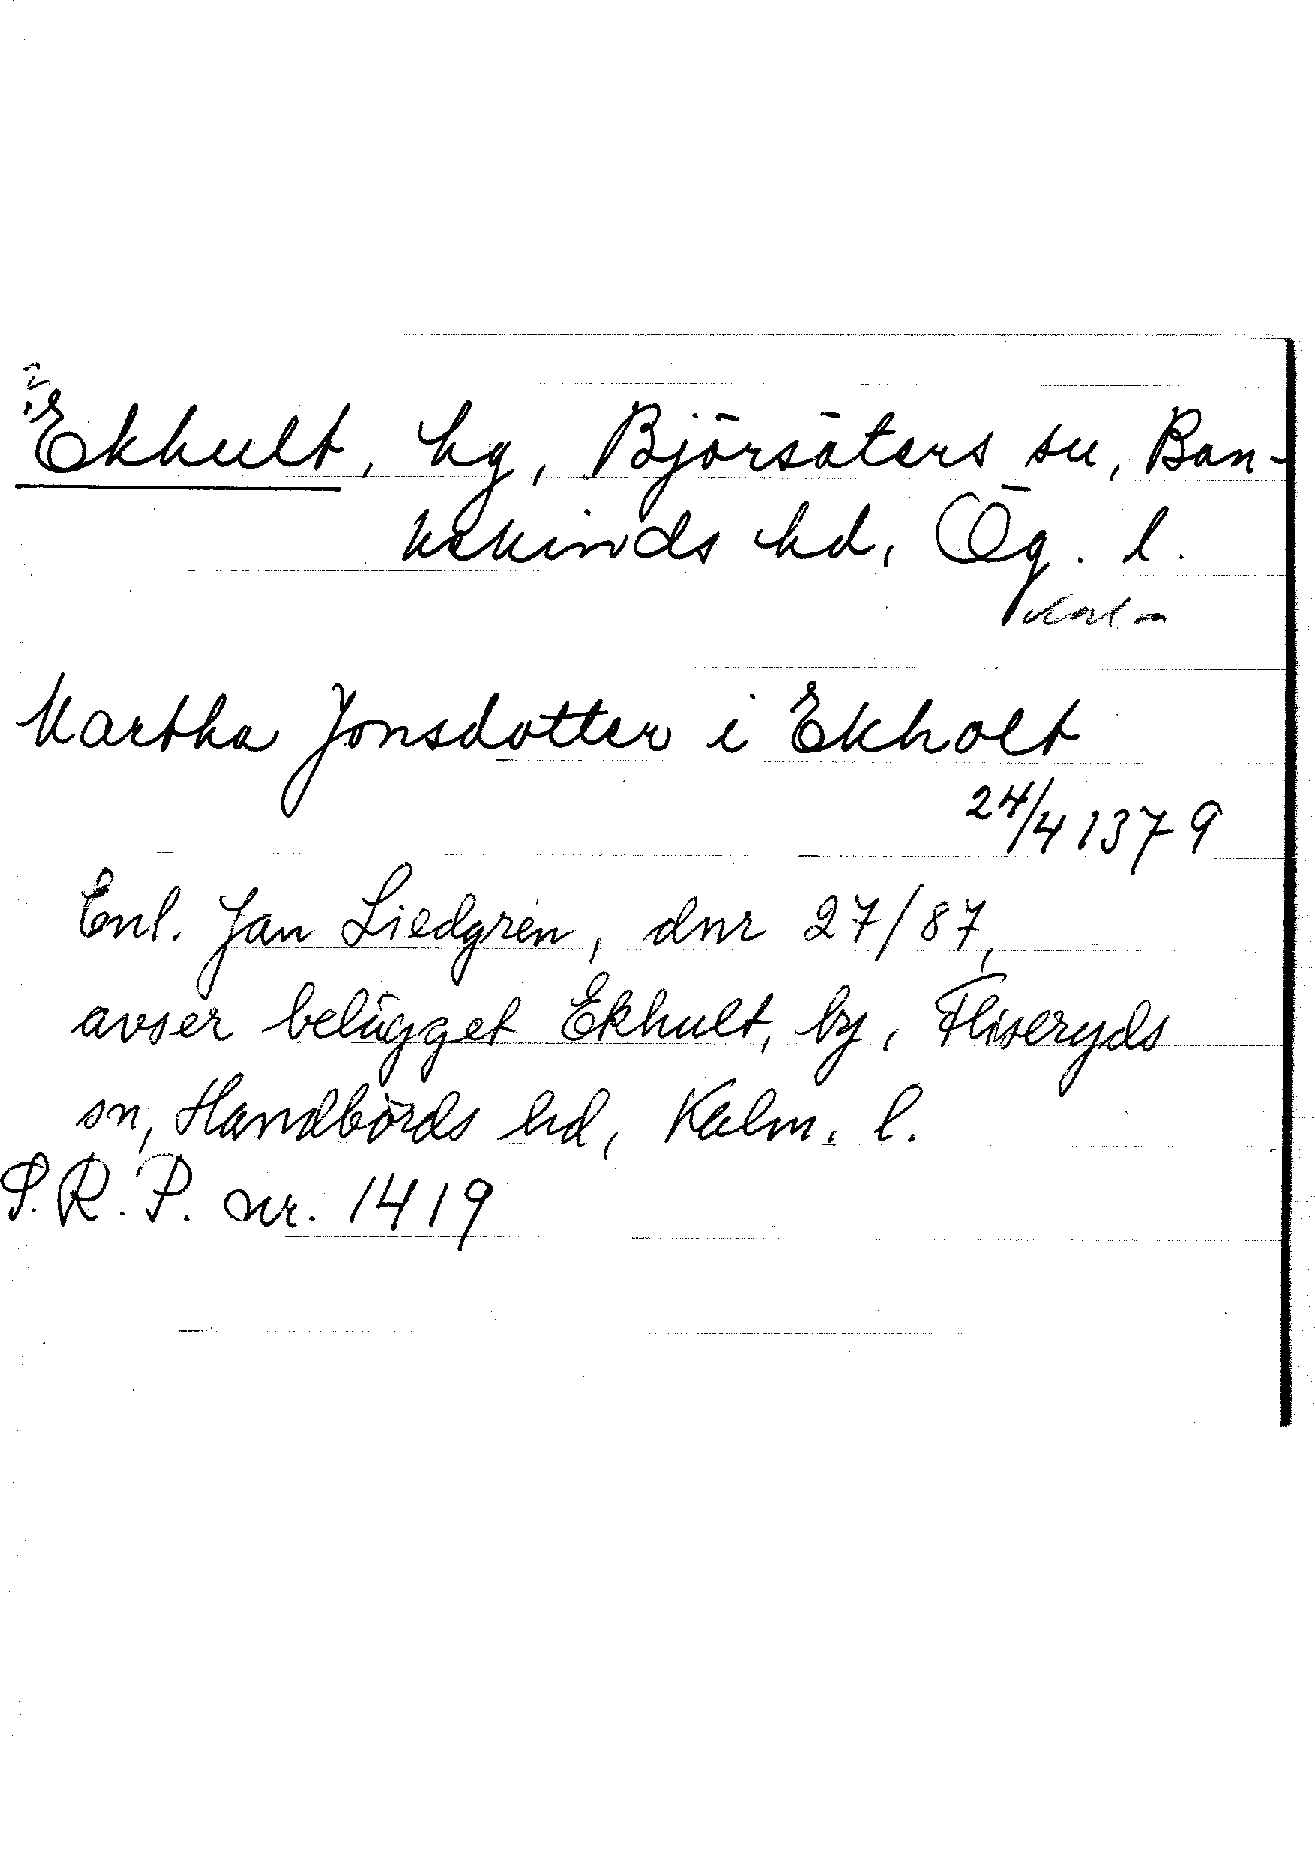 Ekhult, hg, Björsäters sn, Ban-
kekinds hd, Ög. l.
Martha Jonsdotter i Ekholt
24/4 1379
Enl. Jan Liedgren, dnr 27/87,
avser belägget Ekhult, by, Fliseryds
sn, Handbörds hd, Kalm. l.
S.R.P. nr. 1419